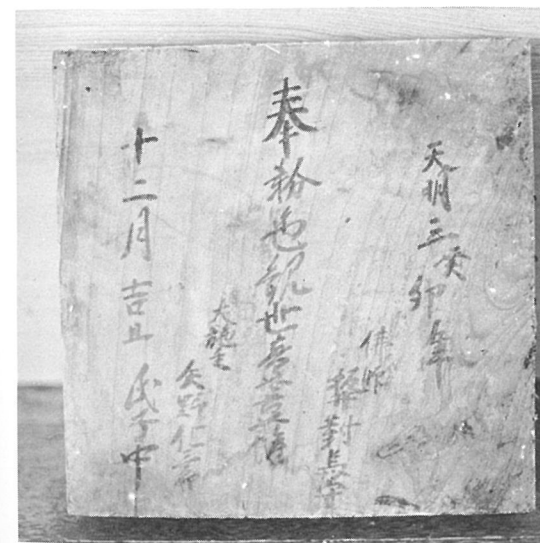 天明三癸卯年
佛師
奉粉色観世音菩薩
大施主
矢野仁三
十二月吉日 氏子中